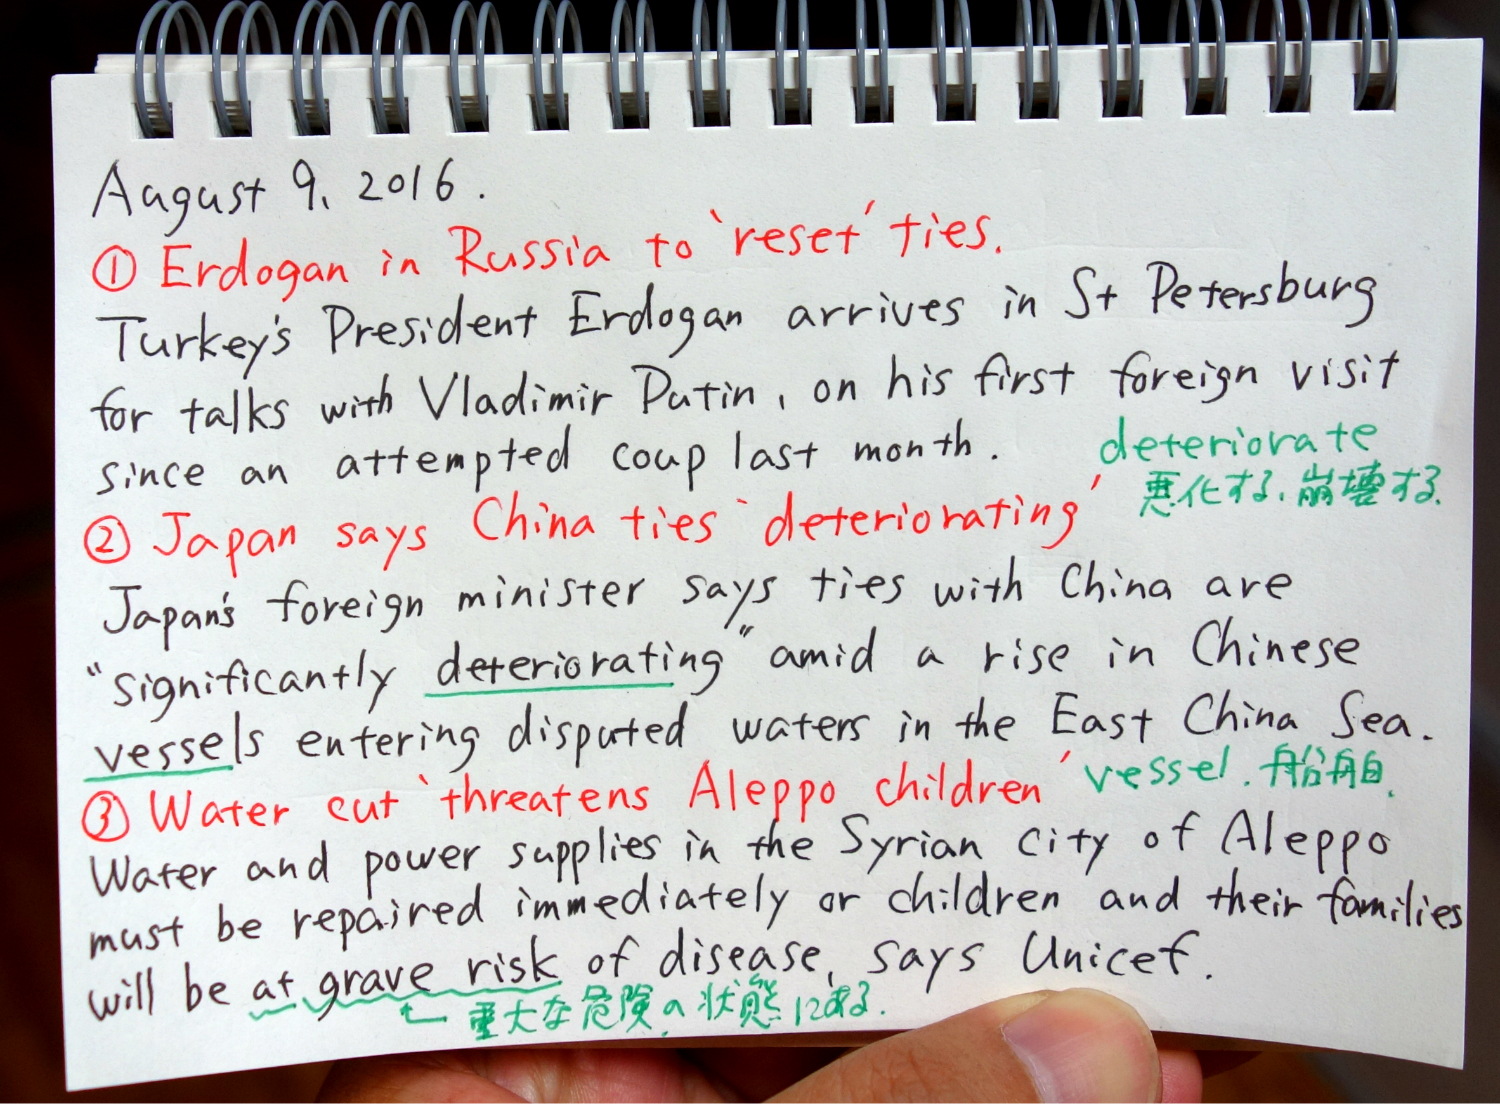 August 9, 2016.
① Erdogan in Russia to 'reset' ties.
Turkey's President Erdogan arrives in St Petersburg
for talks with Vladimir Putin, on his first foreign visit
since an attempted coup last month.
deteriorate
悪化する、崩壊する.
② Japan says China ties 'deteriorating'
Japan's foreign minister says ties with China are
"significantly deteriorating" amid a rise in Chinese
vessels entering disputed waters in the East China Sea.
vessel. 船舶.
③ Water cut 'threatens Aleppo children'
Water and power supplies in the Syrian city of Aleppo
must be repaired immediately or children and their families
will be at grave risk of disease, says Unicef.
重大な危険の状態にある.